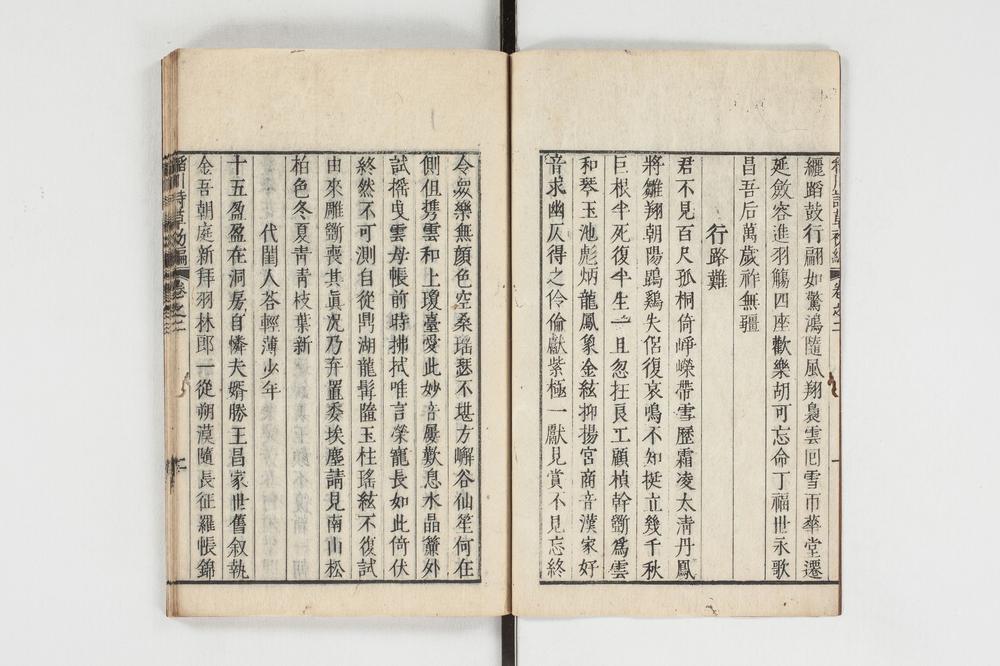 纒蹈鼓行翩如驚鴻隨風翔裊雲囘雪帀華堂遷
延斂容進羽觴四座歡樂胡可忘命丁福世永歌
昌吾后萬歲祚無疆
行路難
君不見百尺孤桐倚崢嶸帶雪歷霜凌太清丹鳳
將雛翔朝陽鵾鷄失侶復哀鳴不知挺立幾千秋
巨根半死復半生一旦忽枉良工顧楨幹斵爲雲
和琴玉池彪炳龍鳳象金絃抑揚宮商音漢家好
音求幽仄得之伶倫獻紫極一獻見賞不見忘終
令衆樂無顏色空桑瑤瑟不堪方嶰谷仙笙何在
側但携雲和上瓊臺愛此妙音屢歎息水晶簾外
試搖曳雲母帳前時拂拭唯言榮寵長如此倚伏
終然不可測自從鼎湖龍髯墮玉柱瑤絃不復試
由來雕斵喪其眞况乃弃置委埃塵請見南山松
柏色冬夏青青枝葉新
代閨人荅輕薄少年
十五盈盈在洞房自憐夫婿勝王昌家世舊叙執
金吾朝庭新拜羽林郎一從朔漠隨長征羅帳錦